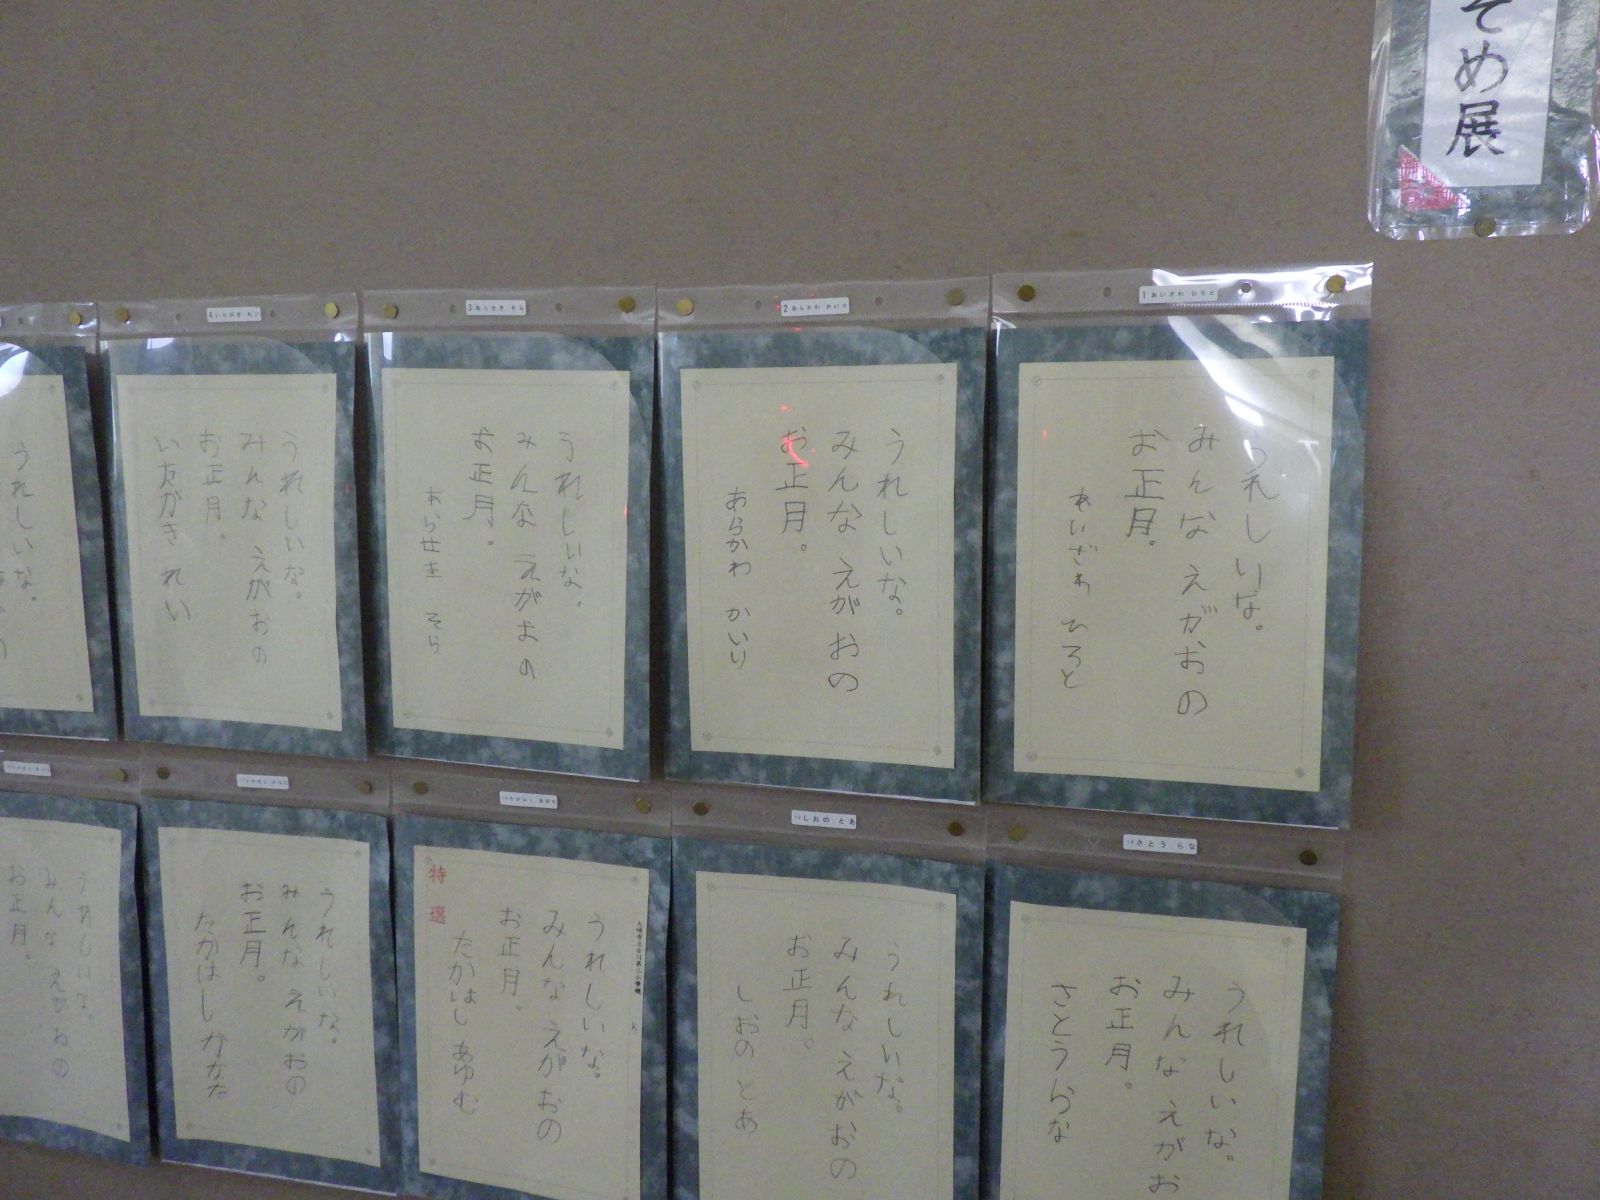 そめ展
1 あいざわ ひろと
うれしいな。
みんな えがおの
お正月。
あいざわ ひろと
2 あらかわ かいり
うれしいな。
みんな えがおの
お正月。
あらかわ かいり
3 あらせき そら
うれしいな。
みんな えがおの
お正月。
あらせき そら
4 いたがき れい
うれしいな。
みんな えがおの
お正月。
いたがき れい
うれしいな。
さとう らな
うれしいな。
みんな えがお
お正月。
さとう らな
しおの とあ
うれしいな。
みんな えがおの
お正月。
しおの とあ
特選
うれしいな。
みんな えがおの
お正月。
たかはし あゆむ
うれしいな。
みんな えがおの
お正月。
たかはし かなた
うれしいな。
みんな えがおの
お正月。